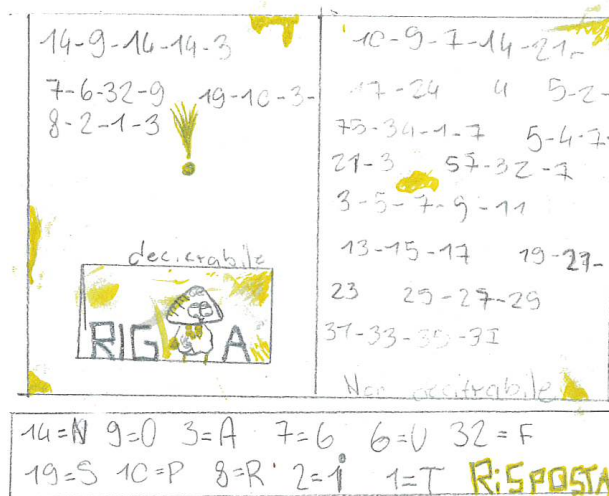 14-9-14-14-3
7-6-32-9 19-10-3-
8-2-1-3
decicrabile
RIG A
10-9-7-14-21-
17-24 4 5-2-
75-34-1-7 5-4-7-
21-3 57-32-7
3-5-7-9-11
13-15-17 19-21-
23 25-27-29
31-33-35-37
Non decifrabile
14=N 9=O 3=A 7=G 6=U 32=F
19=S 10=P 8=R 2=i 1=T RiSPOSTA